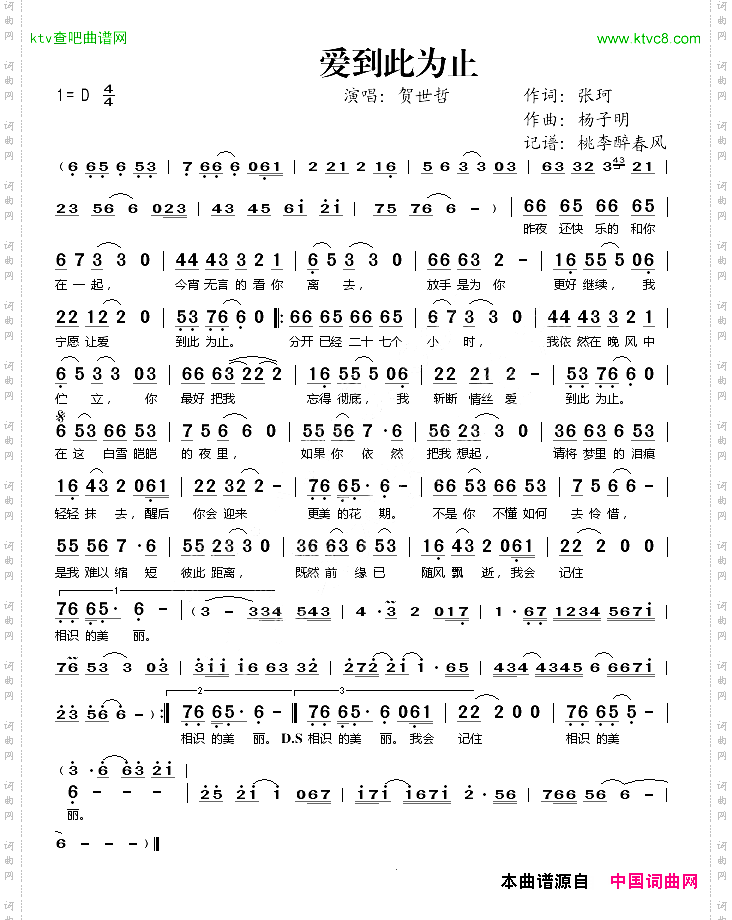 ktv查吧曲谱网 www.ktvc8.com
爱到此为止
1= D 4/4 演唱：贺世哲 作词：张珂
作曲：杨子明
记谱：桃李醉春风
( 6 65 6 53 | 7 66 6 061 | 2 21 2 16 | 5 63 3 03 | 63 32 3 43 21 |
23 56 6 023 | 43 45 6i 2i | 75 76 6 - ) | 66 65 66 65 |
昨夜 还快 乐的 和你
6 7 3 3 0 | 44 43 3 2 1 | 6 5 3 3 0 | 66 63 2 - | 16 55 5 06 |
在 一 起， 今宵 无言 的 看你 离 去， 放手 是 为 你 更好 继续， 我
22 12 2 0 | 53 76 6 0 ‖: 66 65 66 65 | 6 7 3 3 0 | 44 43 3 2 1 |
宁愿 让爱 到此 为止。 分开 已经 二十 七个 小 时， 我依 然在 晚 风 中
6 5 3 3 03 | 66 63 22 2 | 16 55 5 06 | 22 21 2 - | 53 76 6 0 |
伫 立， 你 最好 把我 忘得 彻底， 我 斩断 情丝 爱 到此 为止。
6 53 66 53 | 7 5 6 6 0 | 55 56 7 · 6 | 56 23 3 0 | 36 63 6 53 |
在 这 白雪 皑皑 的 夜 里， 如果 你 依 然 把我 想起， 请将 梦里 的 泪痕
16 43 2 061 | 22 32 2 - | 76 65· 6 - | 66 53 66 53 | 7 5 6 6 - |
轻轻 抹 去，醒后 你会 迎来 更美 的花 期。 不是 你 不懂 如何 去 怜 惜，
55 56 7 · 6 | 55 23 3 0 | 36 63 6 53 | 16 43 2 061 | 22 2 0 0 |
是我 难以 缩 短 彼此 距离， 既然 前 缘已 随风 飘 逝，我会 记住
1
76 65· 6 - | (3 - 334 543 | 4 ·3 2 017 | 1 ·67 1234 567i |
相识 的美 丽。
76 53 3 03 | 3ii i6 63 32 | 272 2i i ·65 | 434 4345 6 667i |
2 3
23 56 6 - ) :‖ 76 65· 6 - ‖ 76 65· 6 061 | 22 2 0 0 | 76 65 5 - |
相识 的美 丽。 D.S 相识 的美 丽。 我会 记住 相识 的美
( 3 ·6 63 2i |
6 - - - | 25 2i i 067 | i7i i67i 2 ·56 | 766 56 6 - |
丽。
6 - - - ) ‖
本曲谱源自 中国词曲网